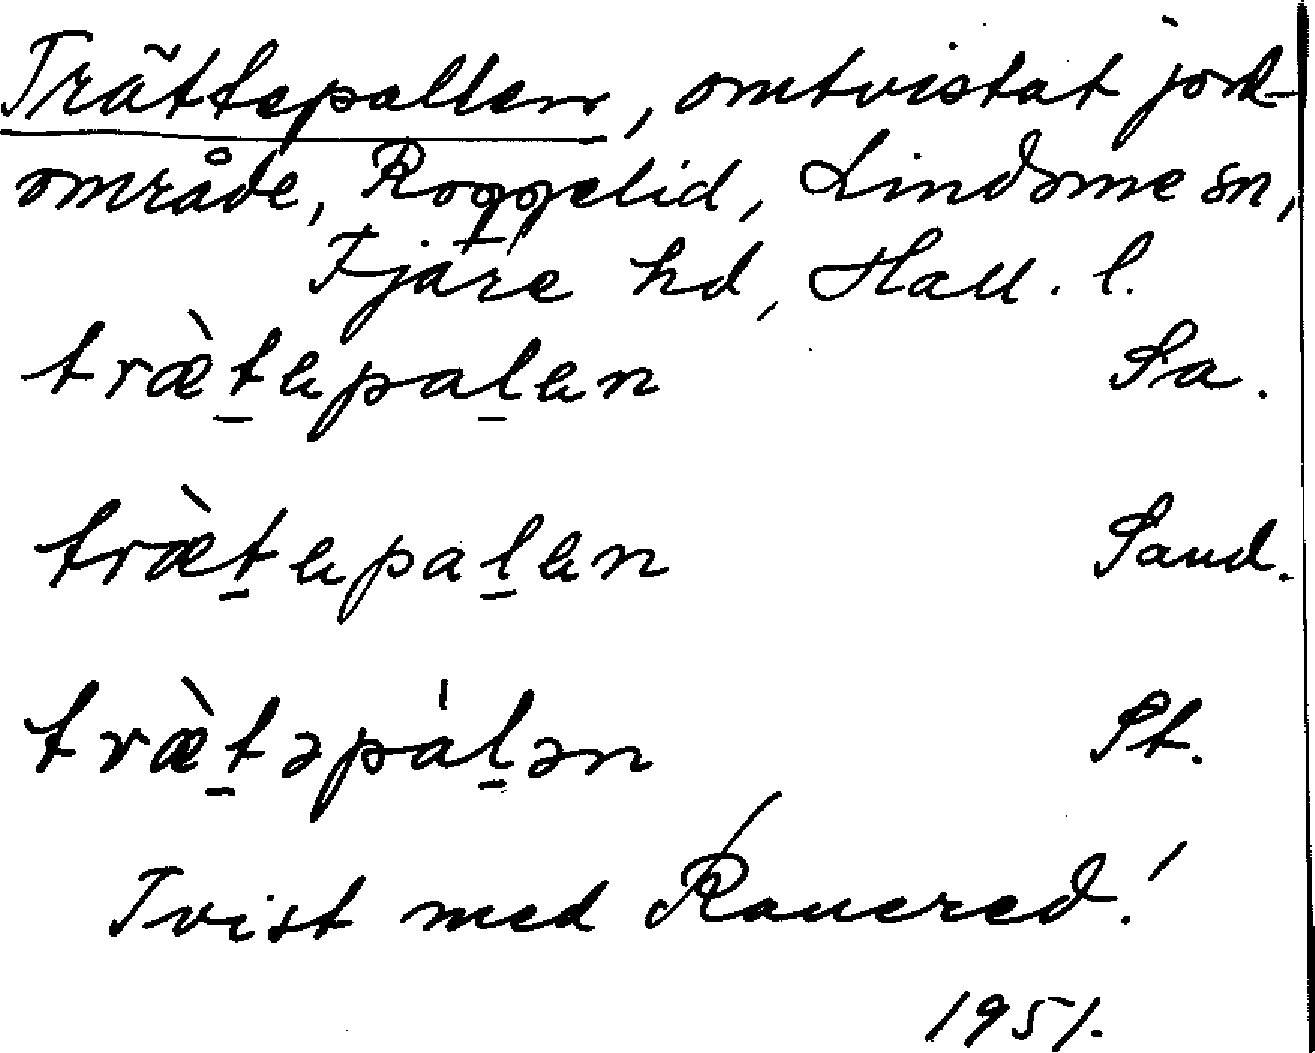 Trättepallen, omtvistat jord-
område, Roggelid, Lindome sn,
Fjäre hd, Hall. l.
træ̀t̠ɐpal̠ɐn Sa.
træ̀t̠ɐpal̠ɐn Sand.
træ̀t̠əpa̍l̠ən St.
Tvist med Ranered!
1951.